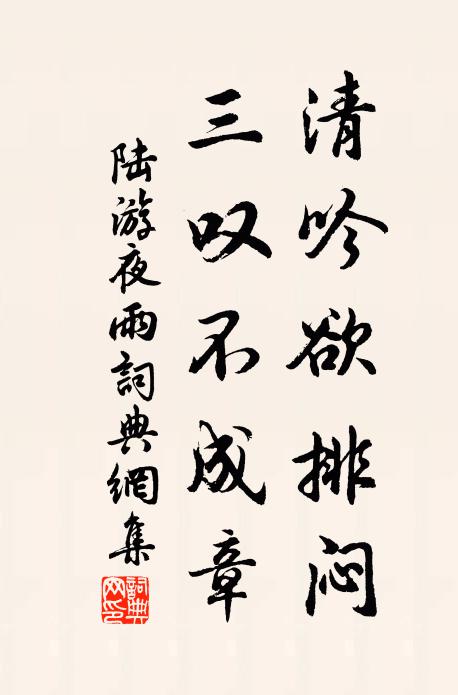 清吟欲排闷
三叹不成章
陆游夜雨詞典網集
詞典网印